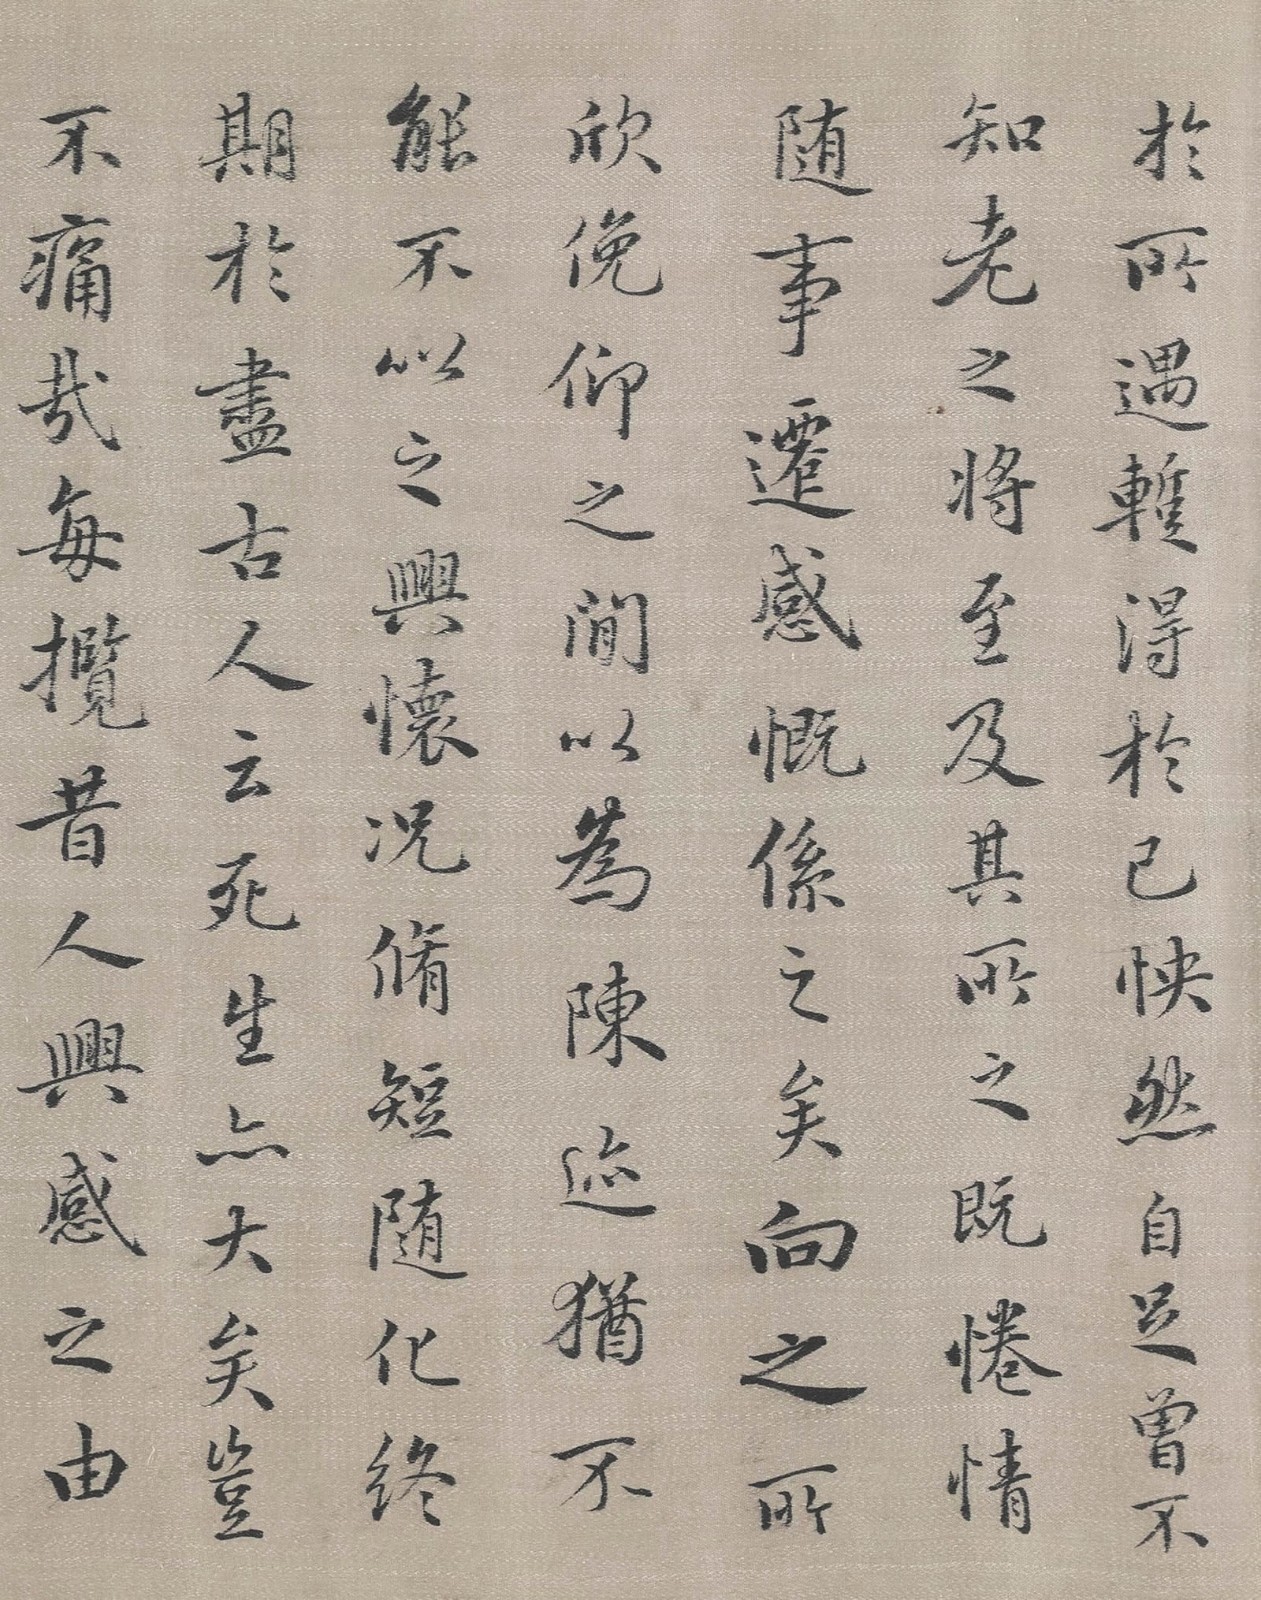 於所遇蹔得於己怏然自足曾不
知老之將至及其所之既惓情
随事遷感慨係之矣向之所
欣俛仰之間以為陳迹猶不
能不以之興懷况脩短随化終
期於盡古人云死生亦大矣豈
不痛哉每攬昔人興感之由